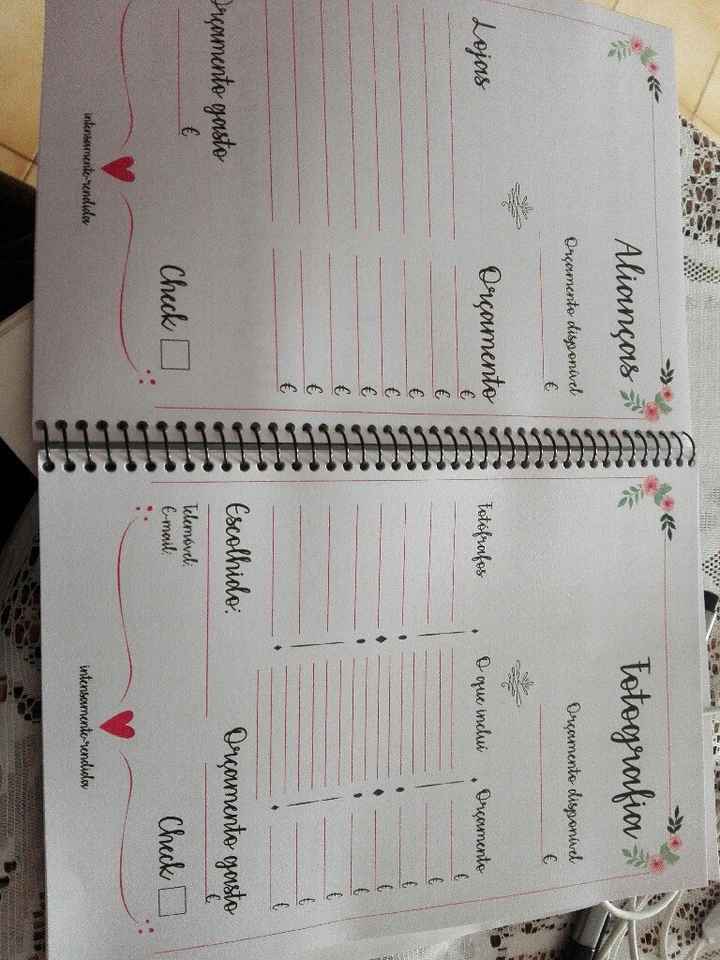 Alianças
Orçamento disponível
€
Lojas Orçamento
€
€
€
€
€
€
€
€
Orçamento gasto
€
Check
intensamente-rendida
Fotografia
Orçamento disponível
€
Fotógrafos O que inclui Orçamento
€
€
€
€
€
€
€
€
Escolhido: Orçamento gasto
€
Telemóvel:
E-mail:
Check
intensamente-rendida